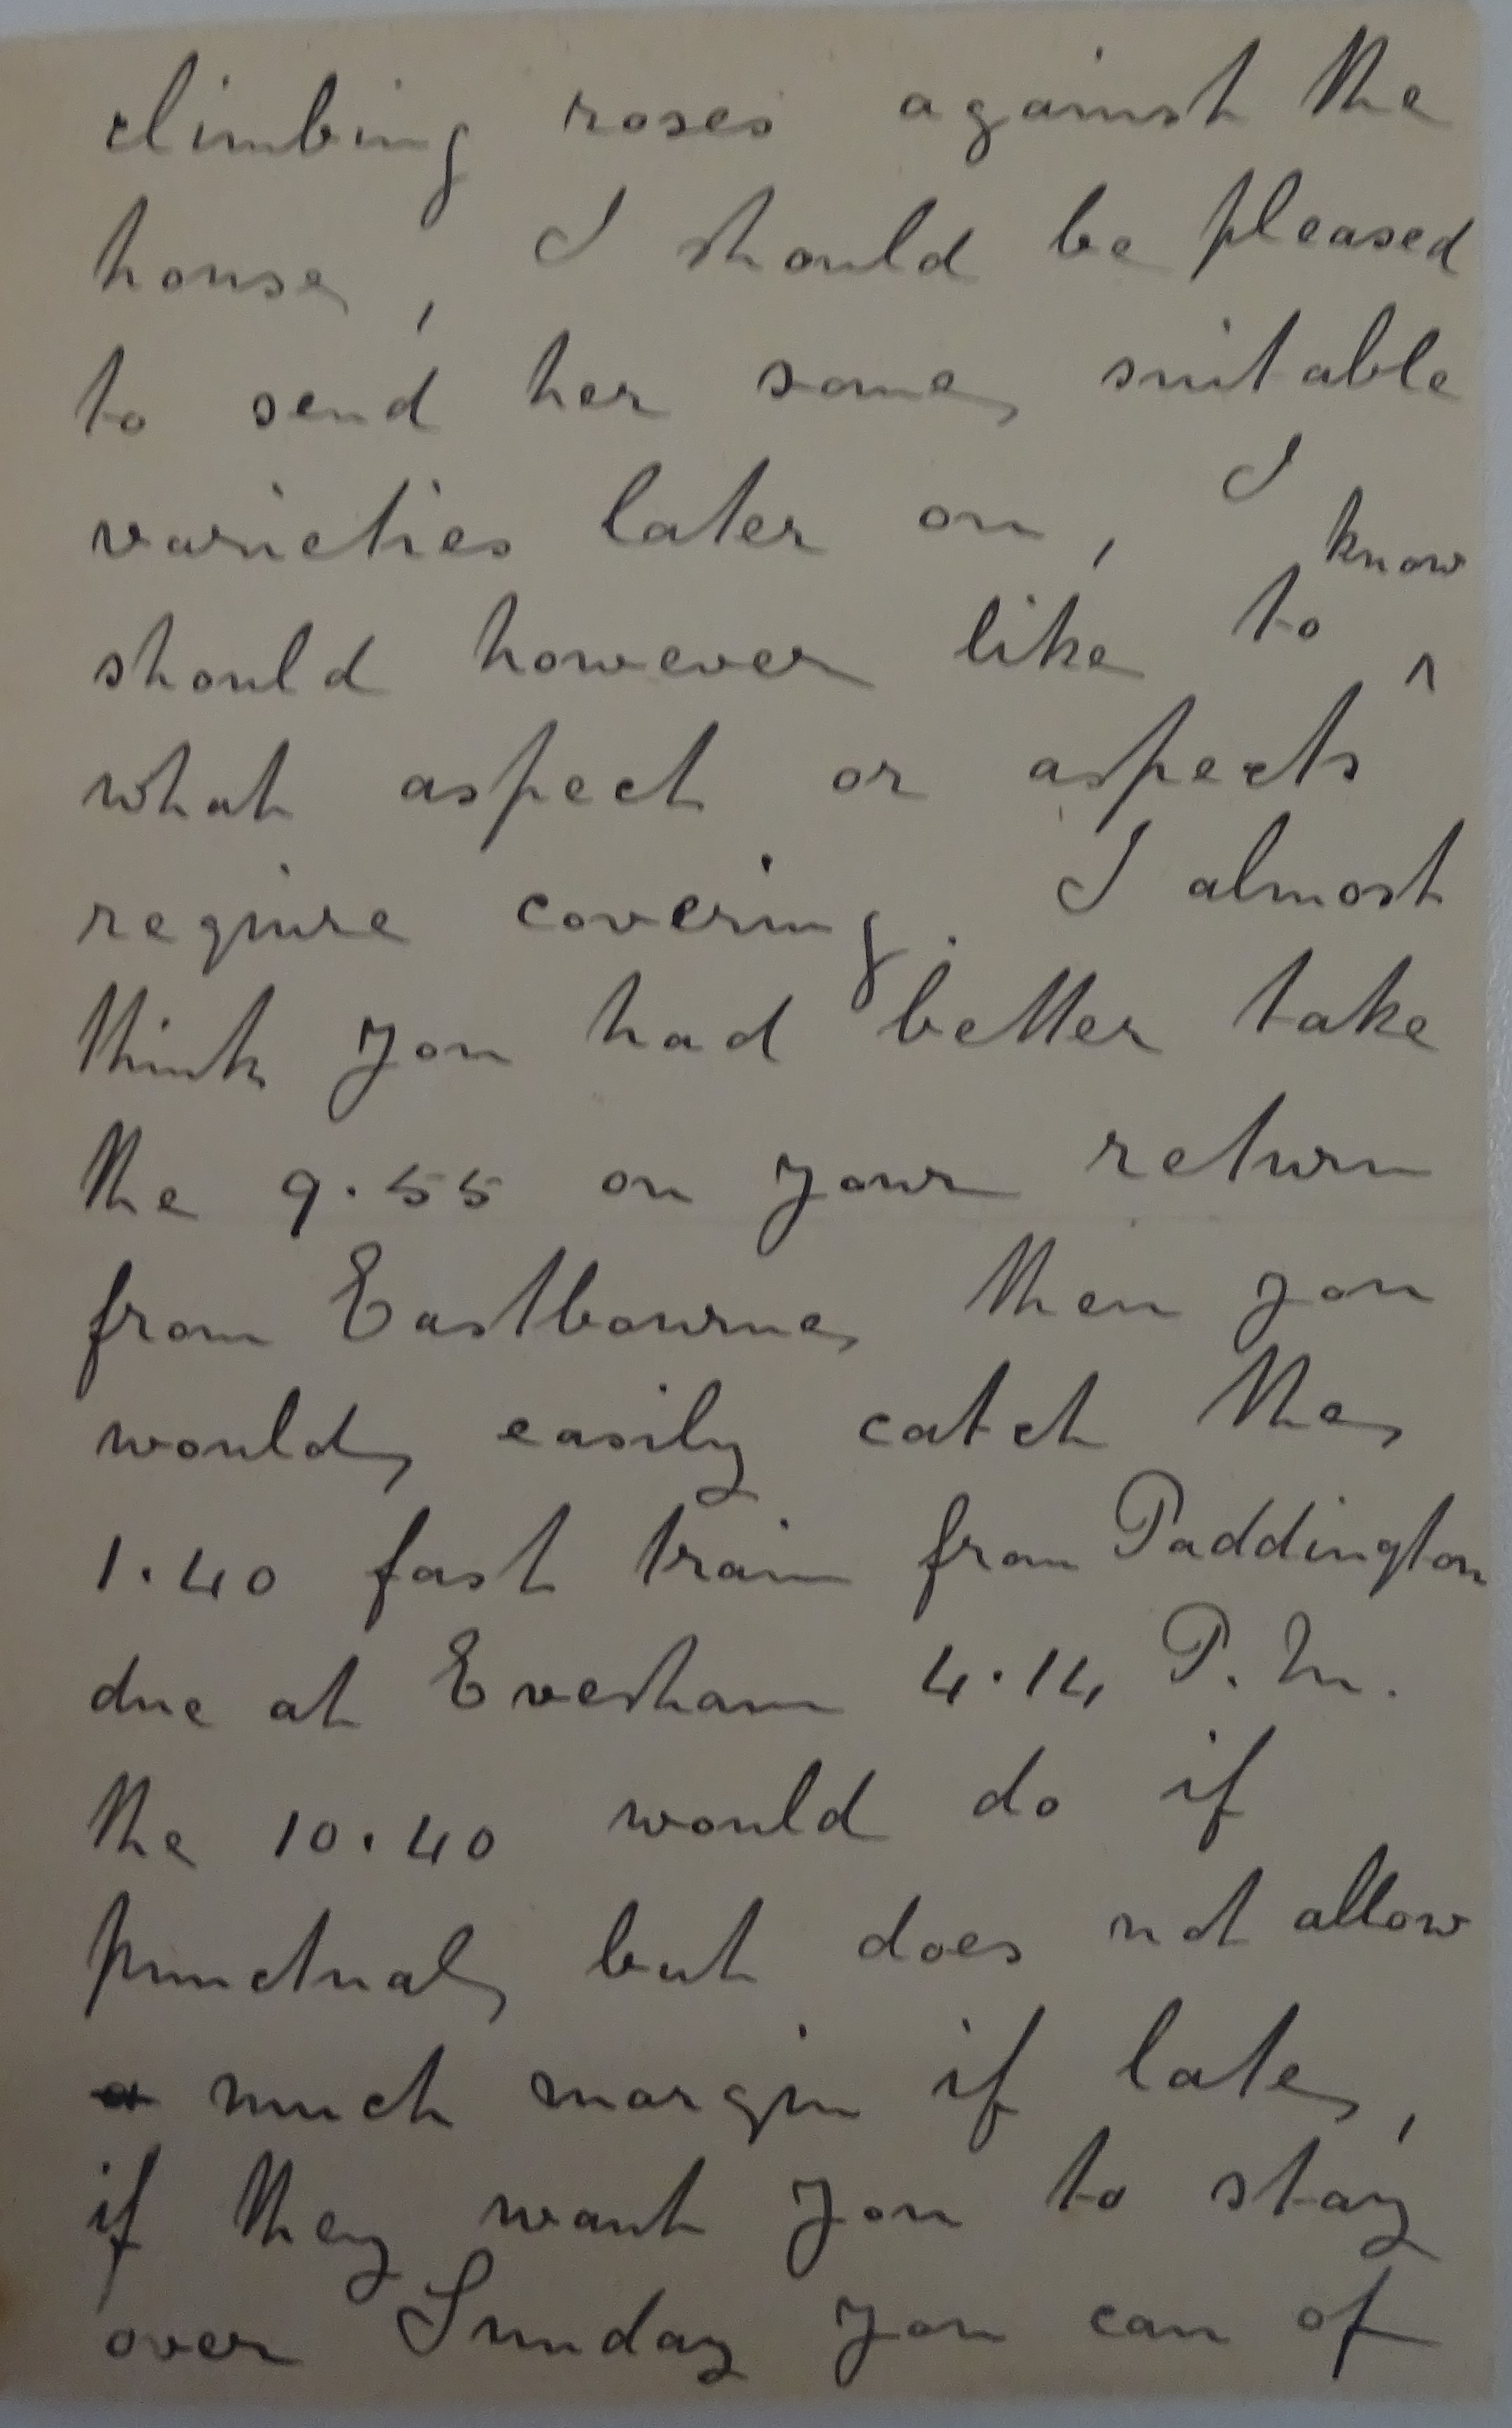 climbing roses against the
house, I should be pleased
to send her some suitable
varieties later on, I
should however like to ^ know
what aspect or aspects
require covering. I almost
think you had better take
the 9.55 on your return
from Eastbourne then you
would easily catch the
1.40 fast train from Paddington
due at Evesham 4.14 P.M.
the 10.40 would do if
punctual but does not allow
a much margin if late,
if they want you to stay
over Sunday you can of